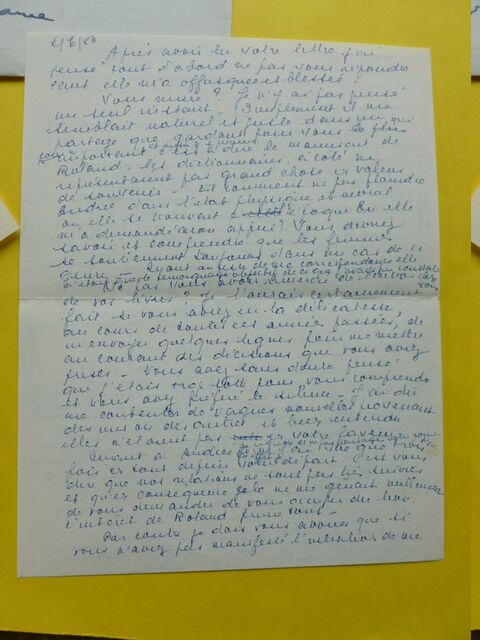 2/6/80
Après avoir lu votre lettre j'ai
pensé tout d'abord ne pas vous répondre
tant elle m'a offusquée et blessée!
Vous nuire? Je n'y ai pas pensé
un seul instant. Simplement il me
semblait naturel et juste dans un
partage que gardant pour vous le plus
important c'est à dire le manuscrit de
Roland, les dictionnaires, à côté ne
représentaient pas grand chose en valeur
de souvenir. Et comment ne pas plaindre
Andrée dans l'état physique et moral
où elle se trouvait à l'époque où elle
m'a demandé mon appui? Vous devriez
savoir et comprendre que les femmes
se soutiennent toujours dans un cas de ce
genre - Quant au
pas vous avoir remercié de
de vos livres? Je l'aurais certainement
fait si vous aviez eu la délicatesse,
au cours de toutes ces années passées, de
m'envoyer quelques lignes pour me mettre
au courant des décisions que vous aviez
prises - Vous avez sans doute pensé
que j'étais trop sotte pour vous comprendre
et vous avez préféré le silence - J'ai dû
me contenter de vagues nouvelles provenant
des uns ou des autres et bien entendu
elles n'étaient pas en votre faveur
Quant à Andrée je n'ai vu que trois
fois depuis votre départ. C'est vous
dire que nos relations ne sont pas très suivies
et qu'en conséquence cela ne me gênait nullement
de vous demander de vous occuper du livre
l'intérêt de Roland
Par contre je dois vous avouer que si
vous n'aviez pas manifesté l'intention de me